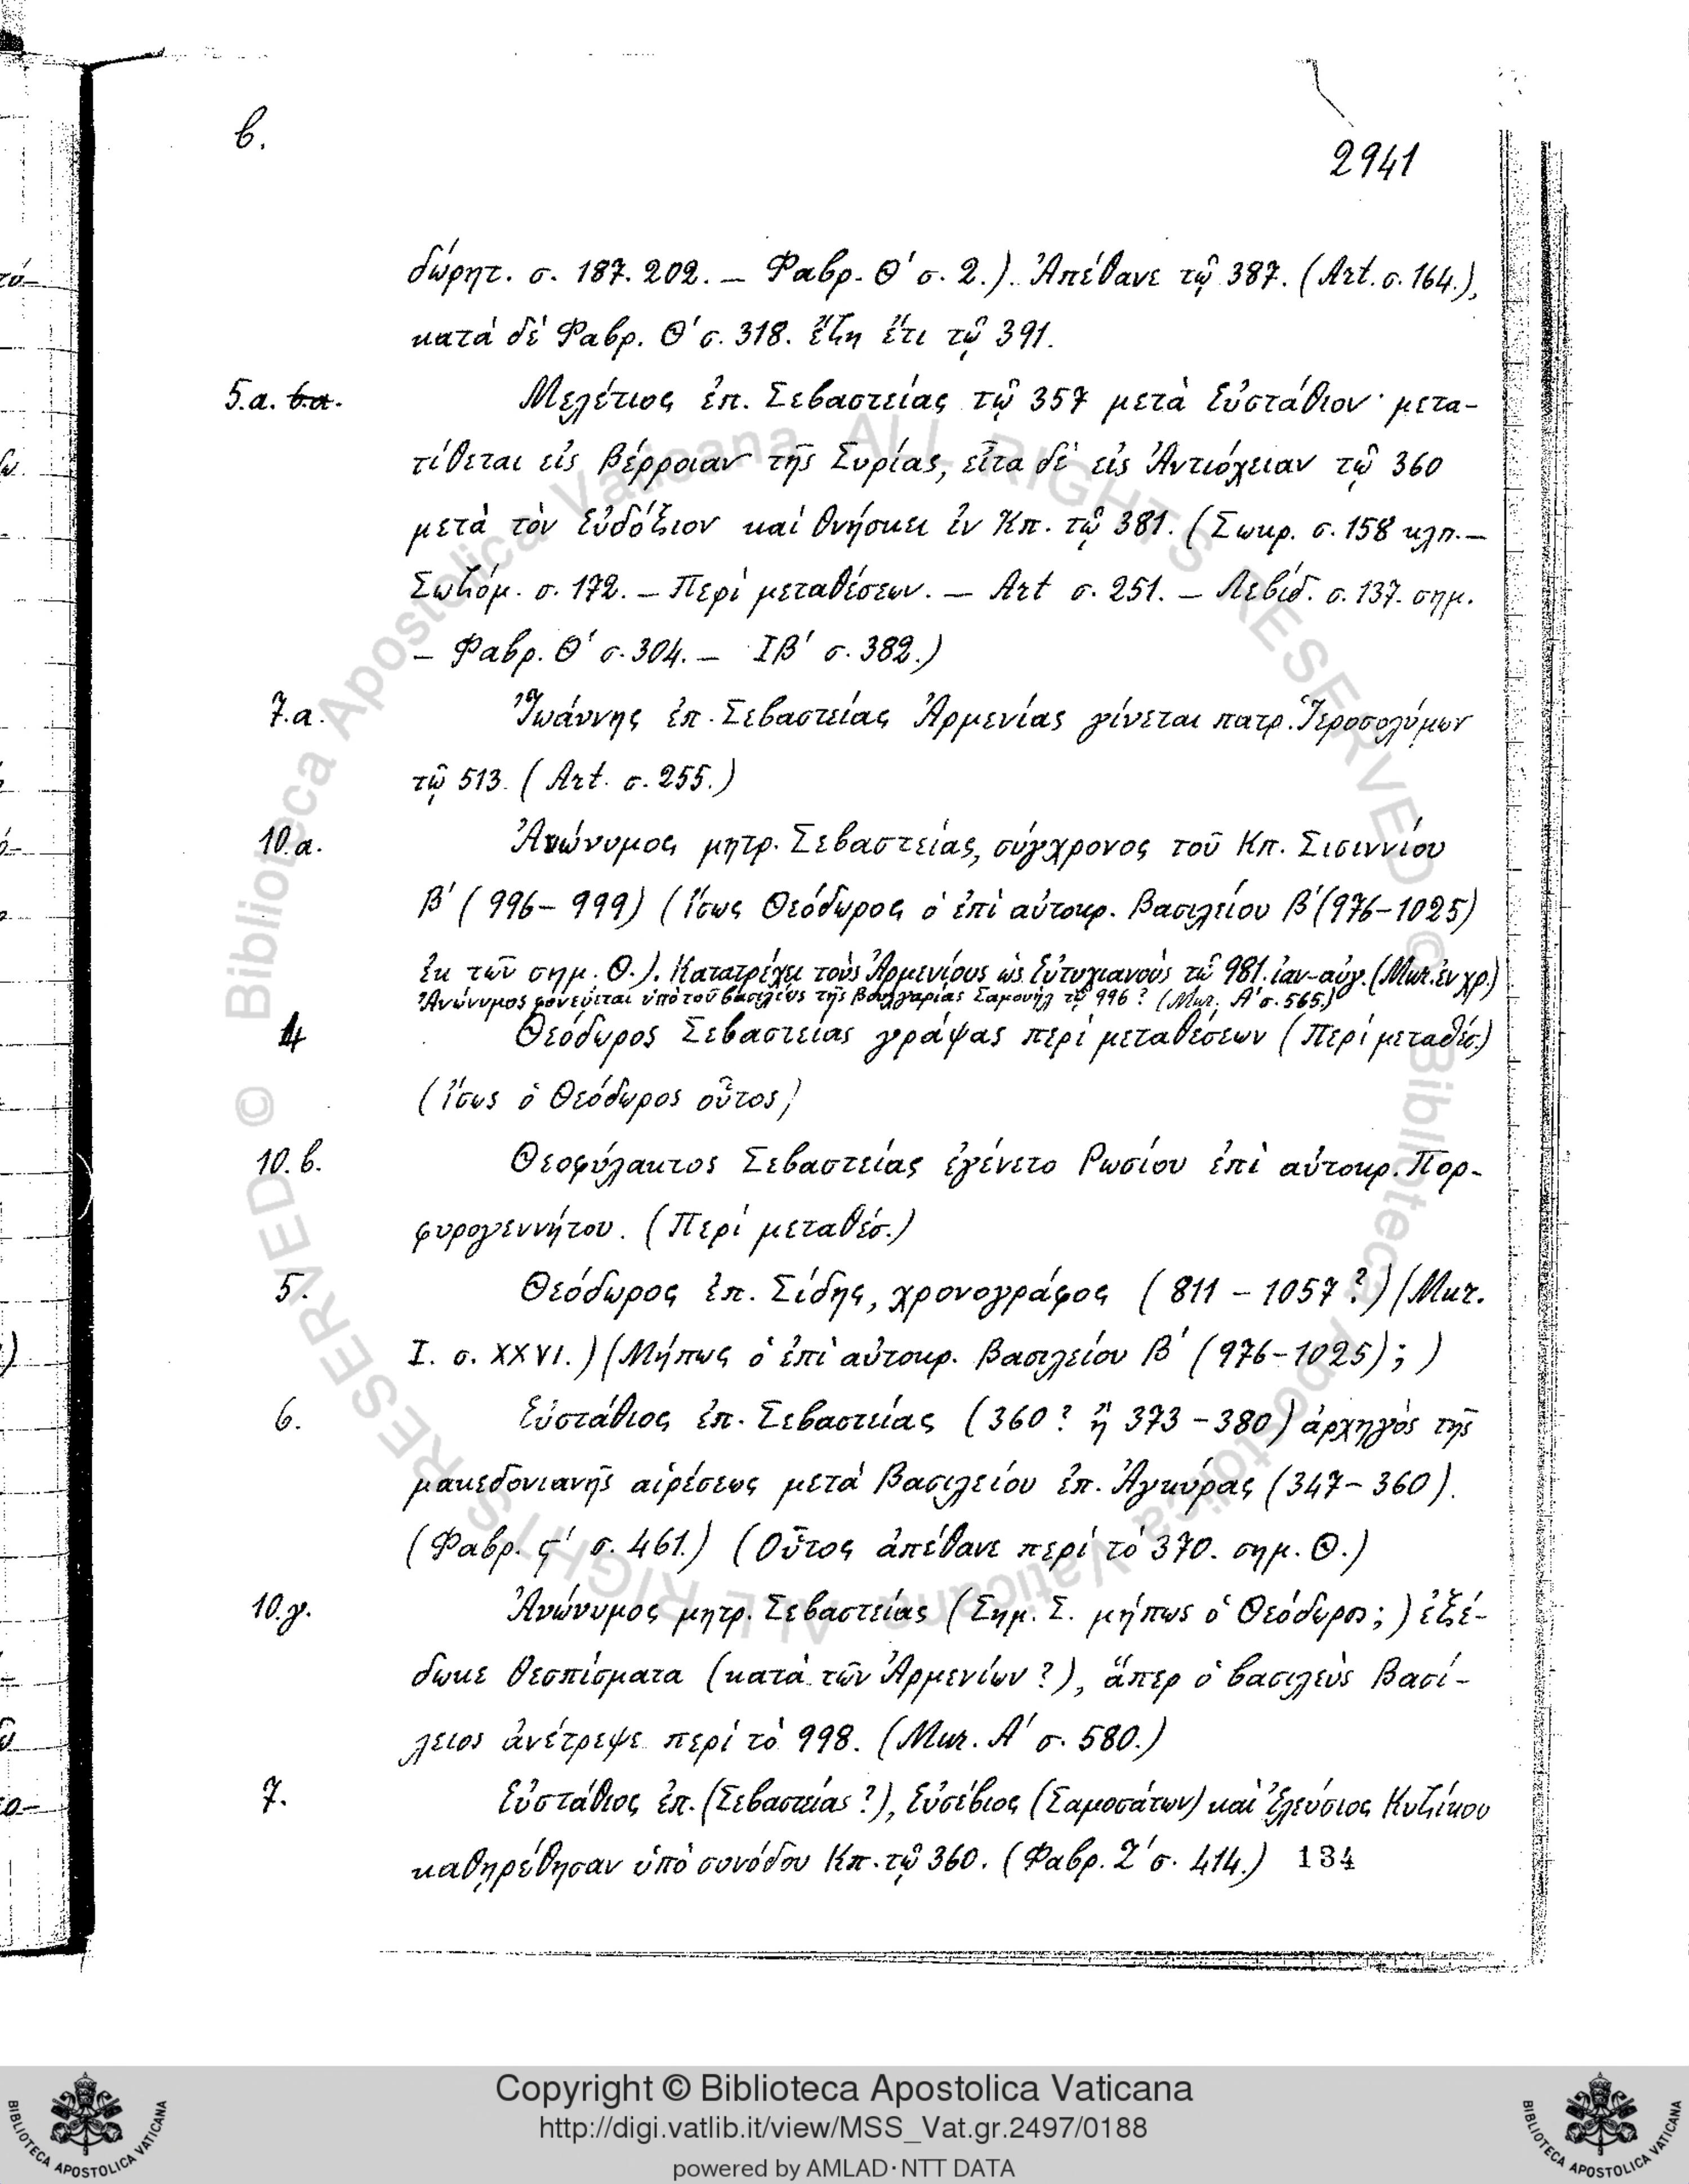 β.
2941
δώρητ. σ. 187. 202. — Φαβρ. Θ' σ. 2.). Ἀπέθανε τῷ 387. (Art. σ. 164.),
κατὰ δὲ Φαβρ. Θ' σ. 318. ἔζη ἔτι τῷ 391.
5.α. 6.α. Μελέτιος ἐπ. Σεβαστείας τῷ 357 μετὰ Εὐστάθιον· μετα-
τίθεται εἰς Βέρροιαν τῆς Συρίας, εἶτα δὲ εἰς Ἀντιόχειαν τῷ 360
μετὰ τὸν Εὐδόξιον καὶ θνήσκει ἐν Κπ. τῷ 381. (Σωκρ. σ. 158 κλπ. —
Σωζόμ. σ. 172. — Περὶ μεταθέσεων. — Art σ. 251. — Λεβίδ. σ. 137. σημ.
— Φαβρ. Θ' σ. 304. — ΙΒ' σ. 382.)
7.α. Ἰωάννης ἐπ. Σεβαστείας Ἀρμενίας γίνεται πατρ. Ἱεροσολύμων
τῷ 513. (Art. σ. 255.)
10.α. Ἀνώνυμος μητρ. Σεβαστείας, σύγχρονος τοῦ Κπ. Σισιννίου
Β' (996 – 999) (ἴσως Θεόδωρος ὁ ἐπὶ αὐτοκρ. Βασιλείου Β' (976 – 1025)
ἐκ τῶν σημ. Θ.). Κατατρέχει τοὺς Ἀρμενίους ὡς Εὐτυχιανοὺς τῷ 981. ἰαν–αὐγ. (Μυρ. ἐν χρ.)
Ἀνώνυμος φονεύεται ὑπὸ τοῦ βασιλέως τῆς Βουλγαρίας Σαμουὴλ τῷ 996? (Μυρ. Α' σ. 565.)
4 Θεόδωρος Σεβαστείας γράψας περὶ μεταθέσεων (Περὶ μεταθέσ.)
(ἴσως ὁ Θεόδωρος οὗτος)
10.β. Θεοφύλακτος Σεβαστείας ἐγένετο Ῥωσίου ἐπὶ αὐτοκρ. Πορ-
φυρογεννήτου. (Περὶ μεταθέσ.)
5. Θεόδωρος ἐπ. Σίδης, χρονογράφος (811 – 1057?) (Μυρ.
I. σ. XXVI.) (Μήπως ὁ ἐπὶ αὐτοκρ. Βασιλείου Β' (976 – 1025); )
6. Εὐστάθιος ἐπ. Σεβαστείας (360? ἢ 373 – 380) ἀρχηγὸς τῆς
μακεδονιανῆς αἱρέσεως μετὰ Βασιλείου ἐπ. Ἀγκύρας (347 – 360).
(Φαβρ. ς' σ. 461.) (Οὗτος ἀπέθανε περὶ τὸ 370. σημ. Θ.)
10.γ. Ἀνώνυμος μητρ. Σεβαστείας (Σημ. Σ. μήπως ὁ Θεόδωρος; ) ἐξέ-
δωκε θεσπίσματα (κατὰ τῶν Ἀρμενίων?), ἅπερ ὁ βασιλεὺς Βασί-
λειος ἀνέτρεψε περὶ τὸ 998. (Μυρ. Α' σ. 580.)
7. Εὐστάθιος ἐπ. (Σεβαστείας?), Εὐσέβιος (Σαμοσάτων) καὶ Ἐλεύσιος Κυζίκου
καθῃρέθησαν ὑπὸ συνόδου Κπ. τῷ 360. (Φαβρ. Ζ' σ. 414.) 134
© Biblioteca Apostolica Vaticana ALL RIGHTS RESERVED
© Biblioteca Apostolica Vaticana ALL RIGHTS RESERVED
Copyright © Biblioteca Apostolica Vaticana
http://digi.vatlib.it/view/MSS_Vat.gr.2497/0188
powered by AMLAD·NTT DATA
BIBLIOTECA APOSTOLICA VATICANA
BIBLIOTECA APOSTOLICA VATICANA